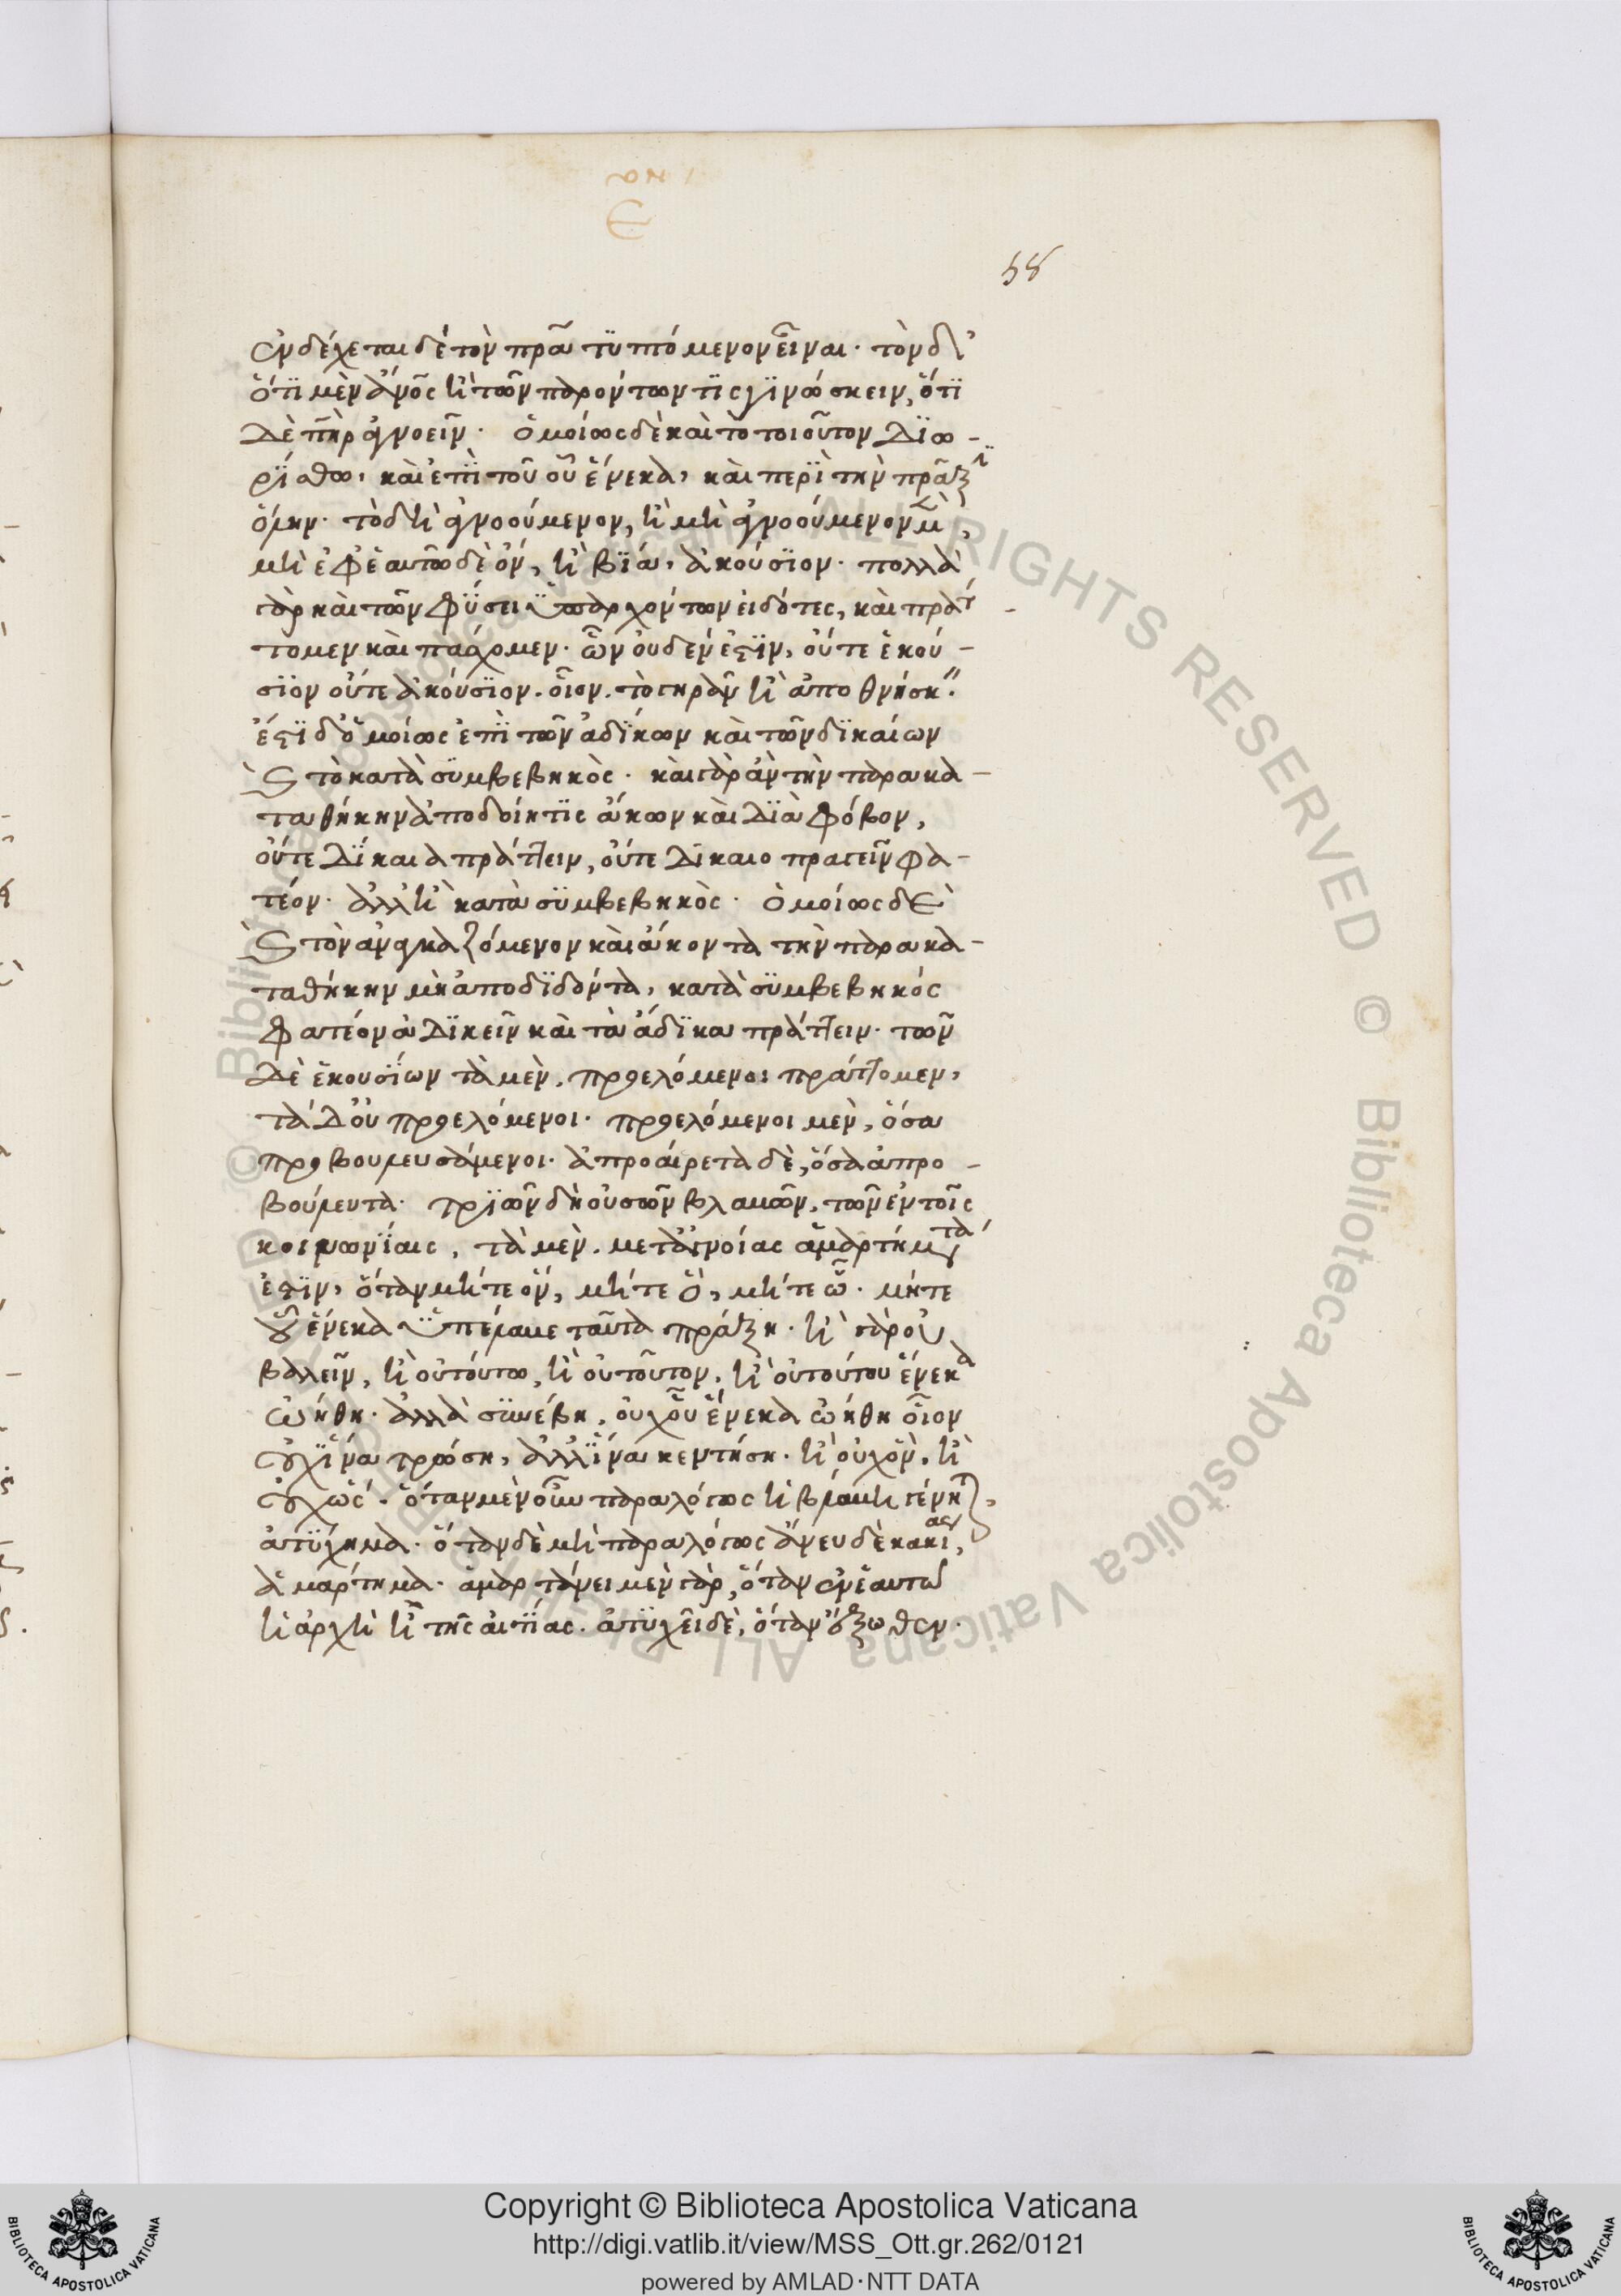 ἐνδέχεται δὲ τὸν πρα̃ τυπτόμενον εἶναι· τὸν δ'
ὅτι μὲν ἄνο̅ς ἢ τῶν παρόντων τὶς γϊνώσκειν, ὅτι
δὲ πη̅ρ ἀγνοεῖν· ὁμοίως δὲ καὶ τὸ τοιοῦτον διω-
ρίσθω, καὶ ἐπὶ τοῦ οὗ ἕνεκα, καὶ περὶ τὴν πρᾶξϊ
ὅλην· τὸ δὴ ἀγνοούμενον, ἢ μὴ ἀγνοούμενον μὲν,
μὴ ἐφ' ἑαυτῶ δὲ ὄν, ἢ βίᾳ, ἀκούσιον· πολλὰ
γὰρ καὶ τῶν φύσει ὑπαρχόντων εἰδότες, καὶ πράτ-
τομεν καὶ πάσχομεν· ὧν οὐδέν ἐστιν, οὔτε ἑκού-
σιον οὔτε ἀκούσιον. οἷον. τὸ γηρᾶν ἢ ἀποθνήσκ''.
ἔστι δ' ὁμοίως ἐπὶ τῶν ἀδίκων καὶ τῶν δικαίων
ϗ τὸ κατὰ συμβεβηκὸς· καὶ γὰρ ἂν τὴν παρακα-
ταθήκην ἀποδοίη τὶς ἄκων καὶ διὰ φόβον,
οὔτε δίκαια πράττειν, οὔτε δικαιοπραγεῖν φα-
τέον· ἀλλ' ἢ κατὰ συμβεβηκὸς· ὁμοίως δὲ
ϗ τὸν ἀναγκαζόμενον καὶ ἄκοντα τὴν παρακα-
ταθήκην μὴ ἀποδιδόντα, κατὰ συμβεβηκός
φατέον ἀδικεῖν καὶ τὰ ἄδικα πράττειν· τῶν
δὲ ἑκουσίων τὰ μὲν. προελόμενοι πράττομεν,
τὰ δ' οὐ προελόμενοι· προελόμενοι μὲν, ὅσα
προβουλευσάμενοι· ἀπροαίρετα δὲ, ὅσα ἀπρο-
βούλευτα· τριῶν δὴ οὐσῶν βλαβῶν, τῶν ἐν τοῖς
κοινωνίαις, τὰ μὲν. μετ' ἀγνοίας ἁμαρτήματά
ἐστιν, ὅταν μήτε ὅν, μήτε ὅ, μήτε ᾧ. μήτε
οὗ ἕνεκα ὑπέλαβε ταῦτα πράξη· ἢ γὰρ οὐ
βαλεῖν, ἢ οὐ τούτω, ἢ οὐ τοῦτον, ἢ οὐ τούτου ἕνεκα
ὠήθη· ἀλλὰ συνέβη, οὐχ οὗ ἕνεκα ὠήθη οἷον
οὐχ ἵνα τρώση, ἀλλ' ἵνα κεντήση· ἢ οὐχ ὃν, ἢ
οὐχ ὥς. ὅταν μὲν οὖν παραλόγως ἡ βλάβη γένηται,
ἀτύχημα· ὅταν δὲ μὴ παραλόγως ἄνευ δὲ κακίας,
ἁμάρτημα· ἁμαρτάνει μὲν γὰρ, ὅταν ἐν ἑαυτῶ
ἡ ἀρχὴ ἦ τῆς αἰτίας. ἀτυχεῖ δὲ, ὅταν ἔξωθεν.
Copyright © Biblioteca Apostolica Vaticana
http://digi.vatlib.it/view/MSS_Ott.gr.262/0121
powered by AMLAD·NTT DATA